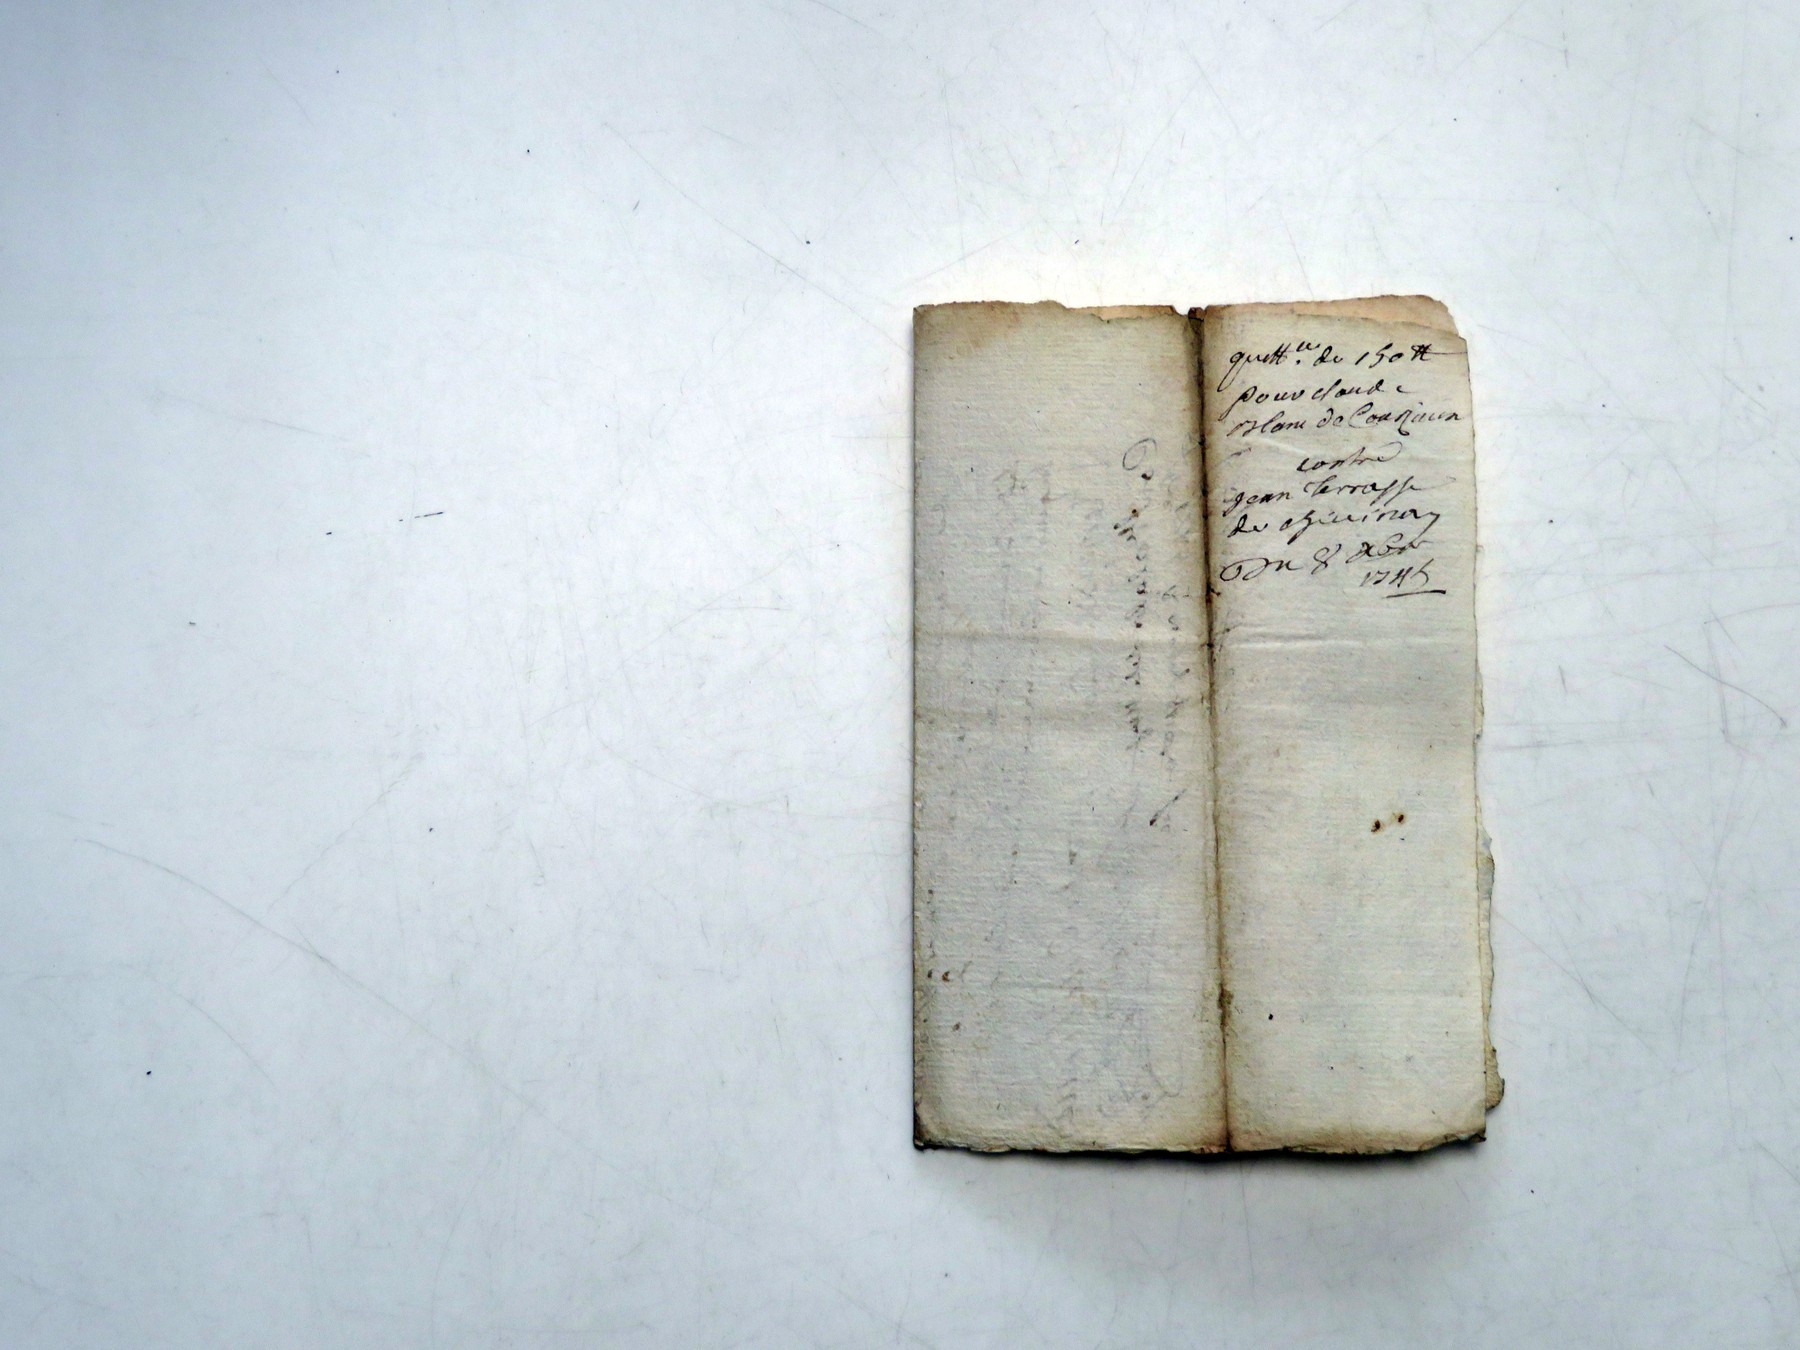 quitt.ce de 150 ₶
pour claude
Blanc de Courzieu
contre
jean terrasse
de chevinay
Du 8 Xbre
1745